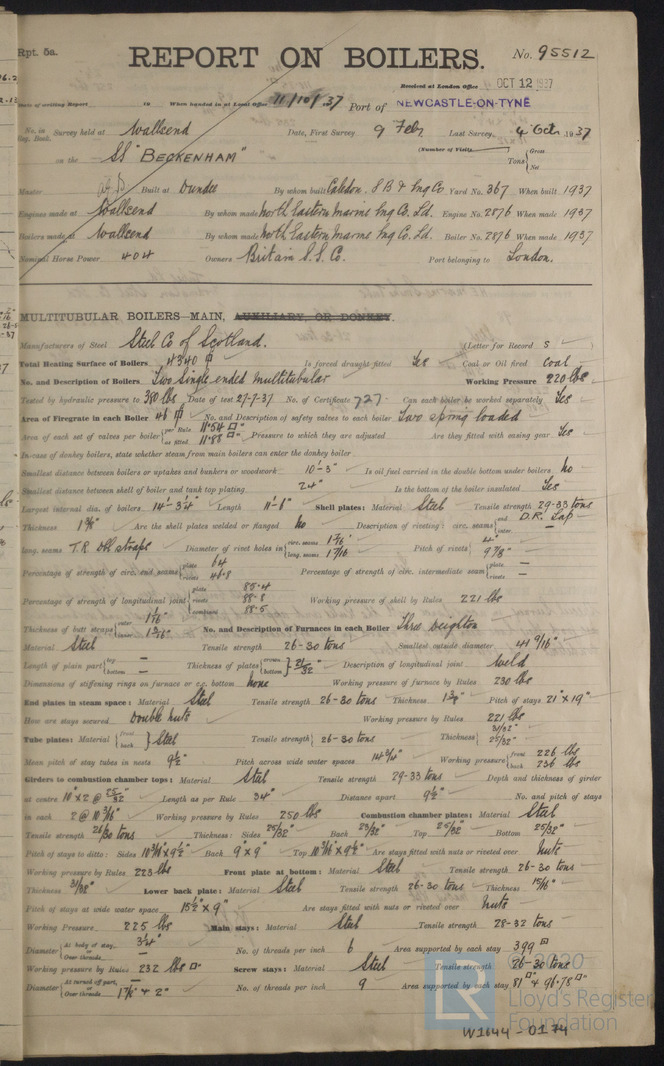 Rpt. 5a.
REPORT ON BOILERS.
No. 95512
Received at London Office OCT 12 1937
Date of writing Report 19 When handed in at Local Office 11/10/37 Port of NEWCASTLE-ON-TYNE
No. in Reg. Book. Survey held at Wallsend Date, First Survey 9 Feby Last Survey 4 Oct 1937
(Number of Visits
on the SS "BECKENHAM" Tons { Gross Net
Master Built at Dundee By whom built Caledon S B & Eng Co Yard No. 367 When built 1937
Engines made at Wallsend By whom made North Eastern Marine Eng Co. Ld. Engine No. 2876 When made 1937
Boilers made at Wallsend By whom made North Eastern Marine Eng Co. Ld. Boiler No. 2876 When made 1937
Nominal Horse Power 404 Owners Britain S.S. Co. Port belonging to London.
MULTITUBULAR BOILERS—MAIN, AUXILIARY, OR DONKEY.
Manufacturers of Steel Steel Co of Scotland. (Letter for Record S )
Total Heating Surface of Boilers 4340 Is forced draught fitted Yes Coal or Oil fired Coal
No. and Description of Boilers Two Single ended multitubular Working Pressure 220 lbs
Tested by hydraulic pressure to 380 lbs Date of test 27-7-37 No. of Certificate 727 Can each boiler be worked separately Yes
Area of Firegrate in each Boiler 46 No. and Description of safety valves to each boiler Two spring loaded
Area of each set of valves per boiler { per Rule 11.54 □" as fitted 11.88 □" Pressure to which they are adjusted Are they fitted with easing gear Yes
In case of donkey boilers, state whether steam from main boilers can enter the donkey boiler
Smallest distance between boilers or uptakes and bunkers or woodwork 10'-3" Is oil fuel carried in the double bottom under boilers No
Smallest distance between shell of boiler and tank top plating 24" Is the bottom of the boiler insulated Yes
Largest internal dia. of boilers 14'-3¼" Length 11'-6" Shell plates: Material Steel Tensile strength 29-33 tons
Thickness Are the shell plates welded or flanged No Description of riveting: circ. seams { end D.R. Lap inter. —
long. seams T.R. Dbl straps Diameter of rivet holes in { circ. seams long. seams 1 7/16 Pitch of rivets { 4" 9 7/8"
Percentage of strength of circ. end seams { plate 64 rivets 46.8 Percentage of strength of circ. intermediate seam { plate — rivets —
Percentage of strength of longitudinal joint { plate 85.4 rivets 88.8 combined 88.5 Working pressure of shell by Rules 221 lbs
Thickness of butt straps { outer 1 1/16" inner 1 3/16" No. and Description of Furnaces in each Boiler Three Deighton
Material Steel Tensile strength 26-30 tons Smallest outside diameter 41 9/16"
Length of plain part { top — bottom — Thickness of plates { crown bottom } 21/32" Description of longitudinal joint Weld
Dimensions of stiffening rings on furnace or c.c. bottom None Working pressure of furnace by Rules 230 lbs
End plates in steam space: Material Steel Tensile strength 26-30 tons Thickness Pitch of stays 21" x 19"
How are stays secured Double nuts Working pressure by Rules 221 lbs
Tube plates: Material { front back } Steel Tensile strength { 26-30 tons Thickness { 31/32" 25/32"
Mean pitch of stay tubes in nests 9½" Pitch across wide water spaces 14¾" Working pressure { front 226 lbs back 236 lbs
Girders to combustion chamber tops: Material Steel Tensile strength 29-33 tons Depth and thickness of girder
at centre 10" x 2 @ 25/32" Length as per Rule 34" Distance apart 9½" No. and pitch of stays
in each 2 @ 10 3/16" Working pressure by Rules 250 lbs Combustion chamber plates: Material Steel
Tensile strength 26/30 tons Thickness: Sides 25/32" Back 23/32" Top 25/32" Bottom 25/32"
Pitch of stays to ditto: Sides 10 3/16" x 9½" Back 9" x 9" Top 10 3/16" x 9½" Are stays fitted with nuts or riveted over Nuts
Working pressure by Rules 223 lbs Front plate at bottom: Material Steel Tensile strength 26-30 tons
Thickness 31/32" Lower back plate: Material Steel Tensile strength 26-30 tons Thickness 15/16"
Pitch of stays at wide water space 15½" x 9" Are stays fitted with nuts or riveted over Nuts
Working Pressure 225 lbs Main stays: Material Steel Tensile strength 28-32 tons
Diameter { At body of stay, 3¼" or Over threads — No. of threads per inch 6 Area supported by each stay 399 □"
Working pressure by Rules 232 lbs □" Screw stays: Material Steel Tensile strength 26-30 tons
Diameter { At turned off part, — or Over threads 1 7/8" & 2" No. of threads per inch 9 Area supported by each stay 81 □" & 96.78 □"
© 2020
LR
Lloyd's Register
Foundation
W1644-0174